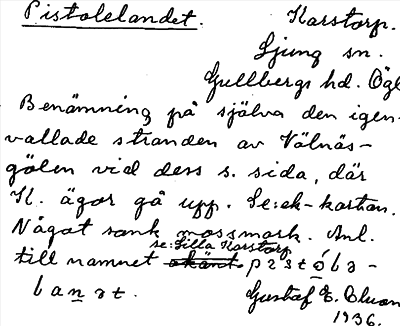 Pistolelandet. Karstorp.
Ljung sn.
Gullbergs hd. Ögl
Benämning på själva den igen-
vallade stranden av Välnäs-
gölen vid dess s. sida, där
K. ägor gå upp. Se: ek-kartan.
Något sank mossmark. Anl.
se: Lilla Karstorp
till namnet okänt. pɪstó̱lə-
lanət. Gustaf E. Eluon
1936.